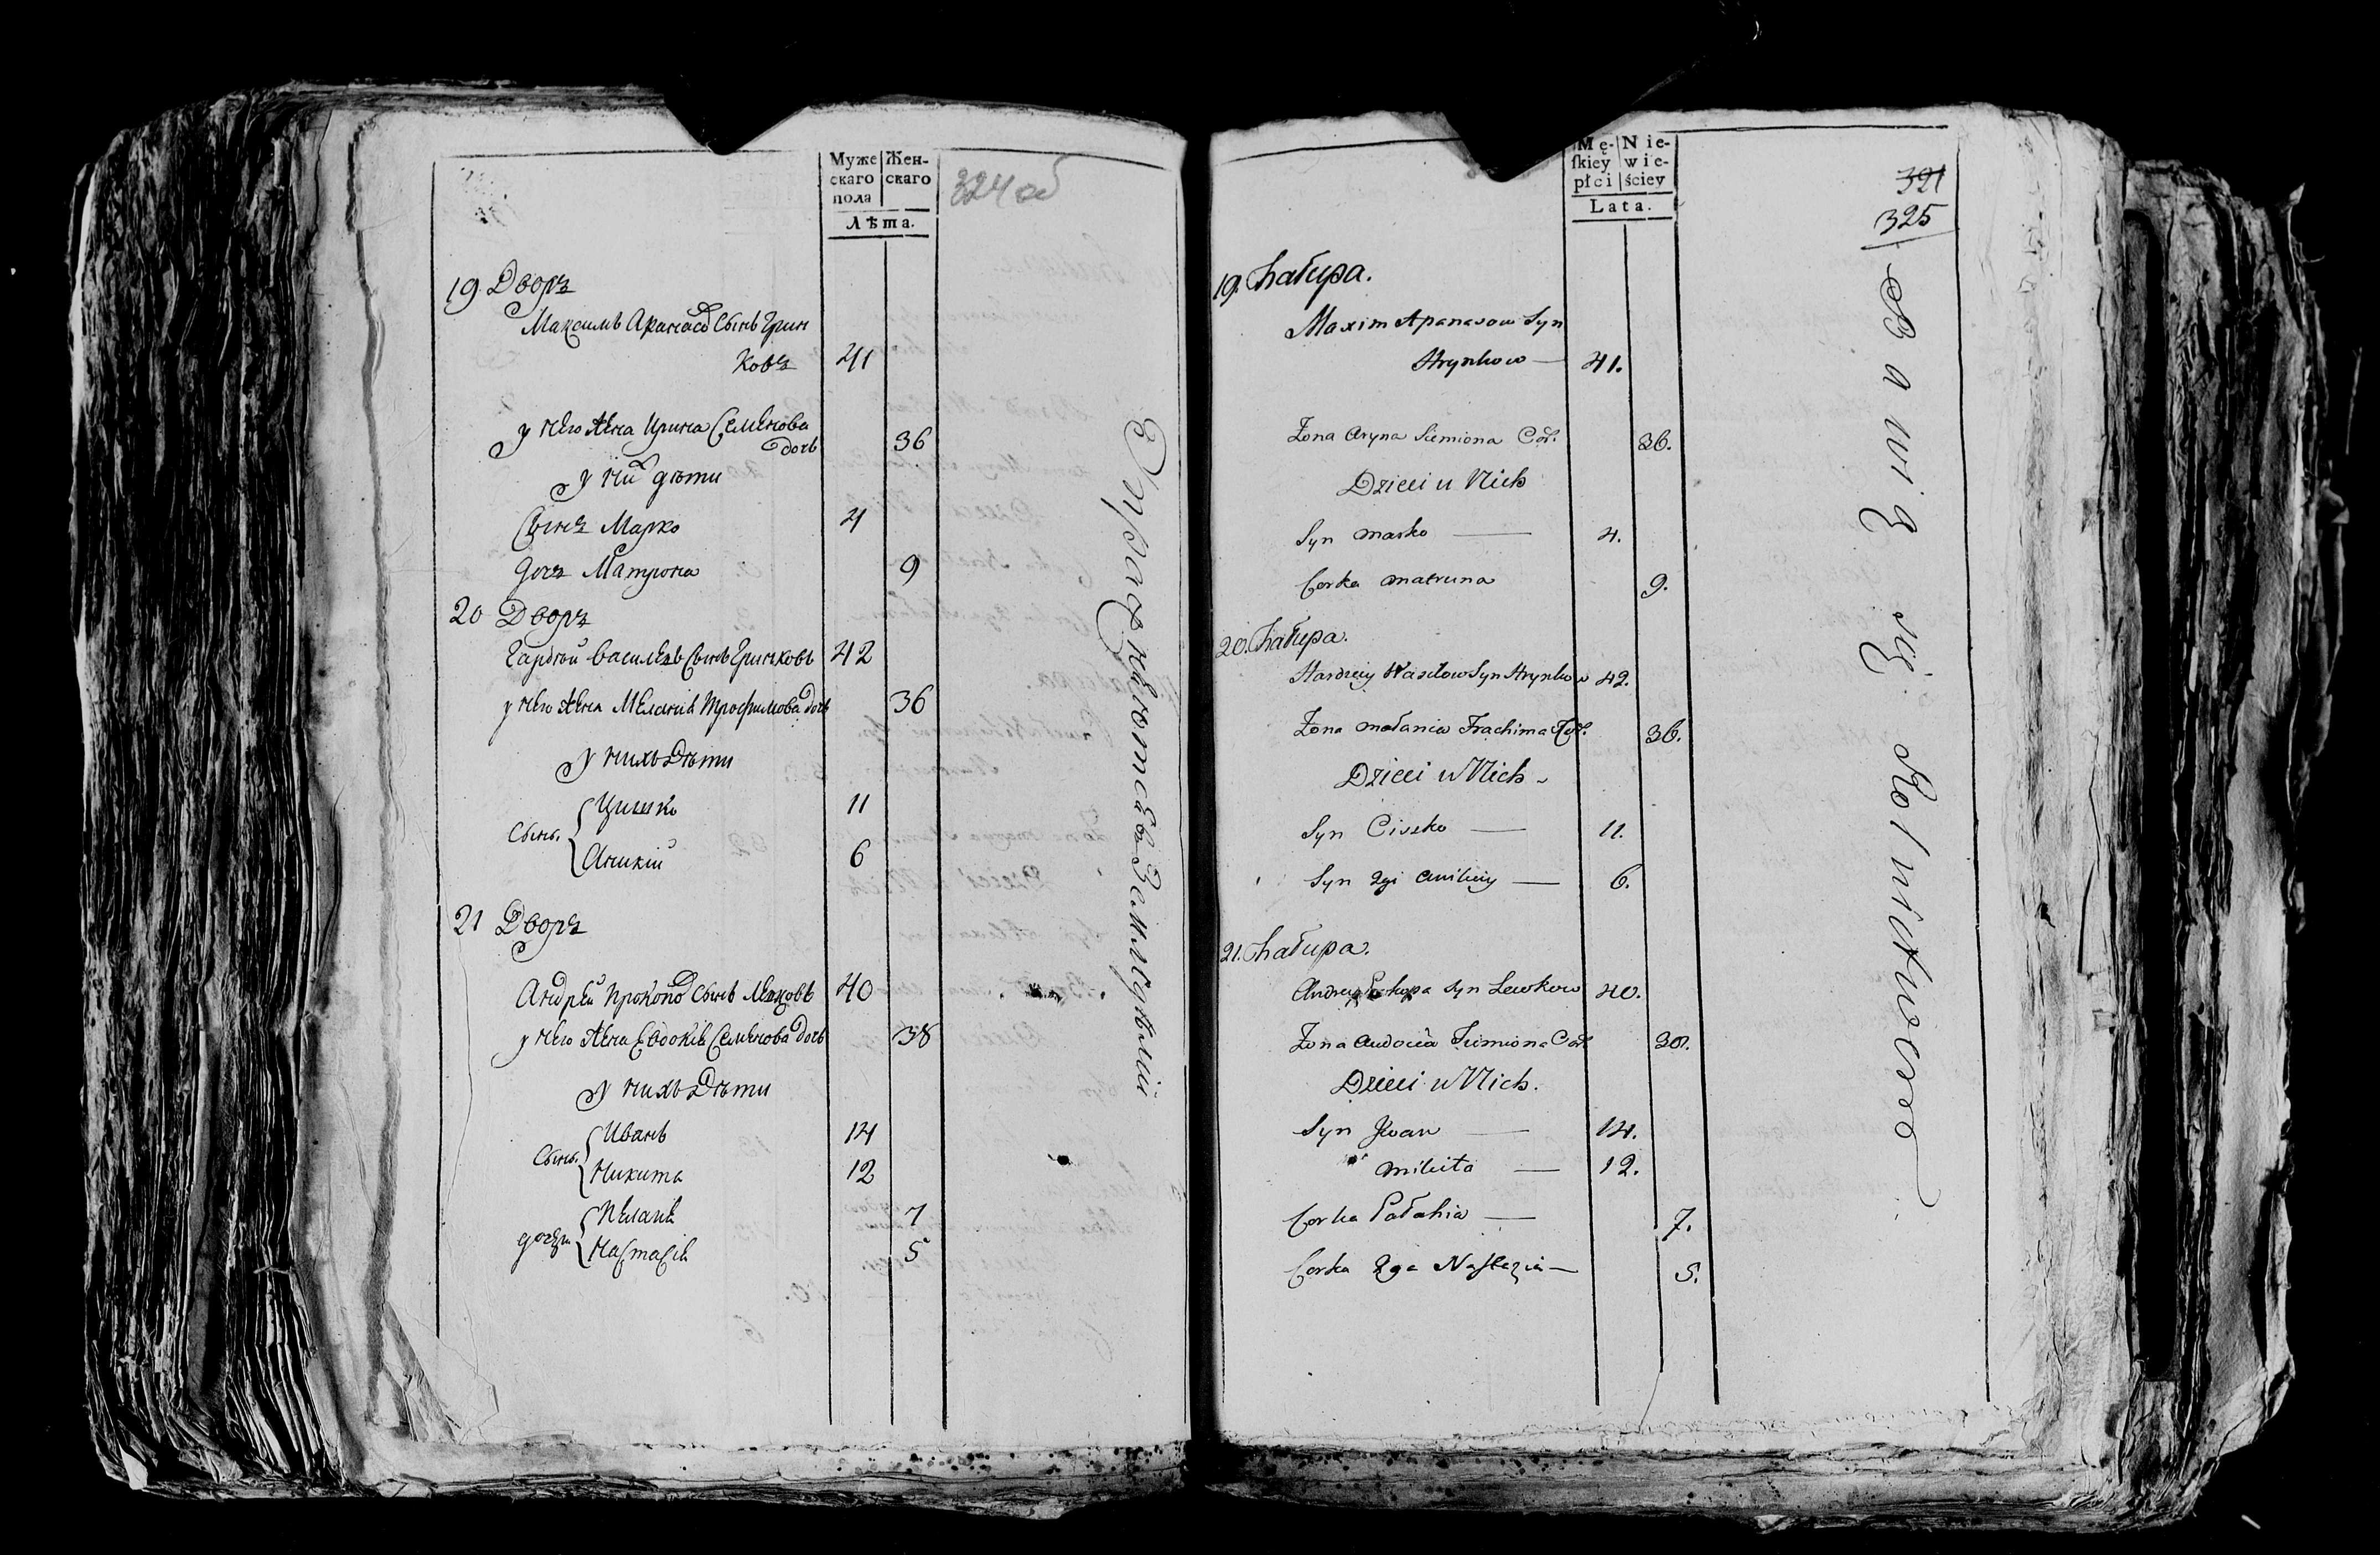 Муже
скаго
пола
Жен-
скаго
Лѣта.
324 об
19 Дворъ
Максимъ Апанасо Сынъ Грин
ковъ 41
у него жена Ирина Семенова
дочь 36
у них дѣти
Сынъ Марко 4
дочъ Матруна 9
20 Дворъ
Гардѣй Василевъ Сынъ Гринковъ 42
у него жена Меланія Трофимова дочь 36
у нихъ Дѣти
Сынь. Цишко 11
Аникій 6
21 Дворъ
Андрей Прокопо Сынъ Левковъ 40
у него жена Евдокія Семенова дочь 38
у нихъ Дѣти
Сынь. Иванъ 14
Никита 12
дочери Пелагѣ 7
Настасія 5
Упражняютсѣ въ Земледѣліи
Mę-
skiey
płci
Nie-
wie-
ściey
Lata.
321
325
19. Chałupa.
Maxim Apanasow Syn
Hrynkow — 41.
Zona Aryna Siemiona Cor. 36.
Dzieci u Nich
Syn Marko — 4.
Corka Matruna 9.
20. Chałupa.
Hardziey Wasilow Syn Hrynkow 42.
Zona Małania Trachima Cor. 36.
Dzieci u Nich -
Syn Ciszko — 11.
Syn 2gi Anikiey — 6.
21. Chałupa.
Andrey Prokopa Syn Lewkow 40.
Zona Audocia Siemiona Cor. 38.
Dzieci u Nich.
Syn Jwan — 14.
Mikita — 12.
Corka Pałahia — 7.
Corka 2ga Nastazia — 5.
Bawią się Rolnictwem